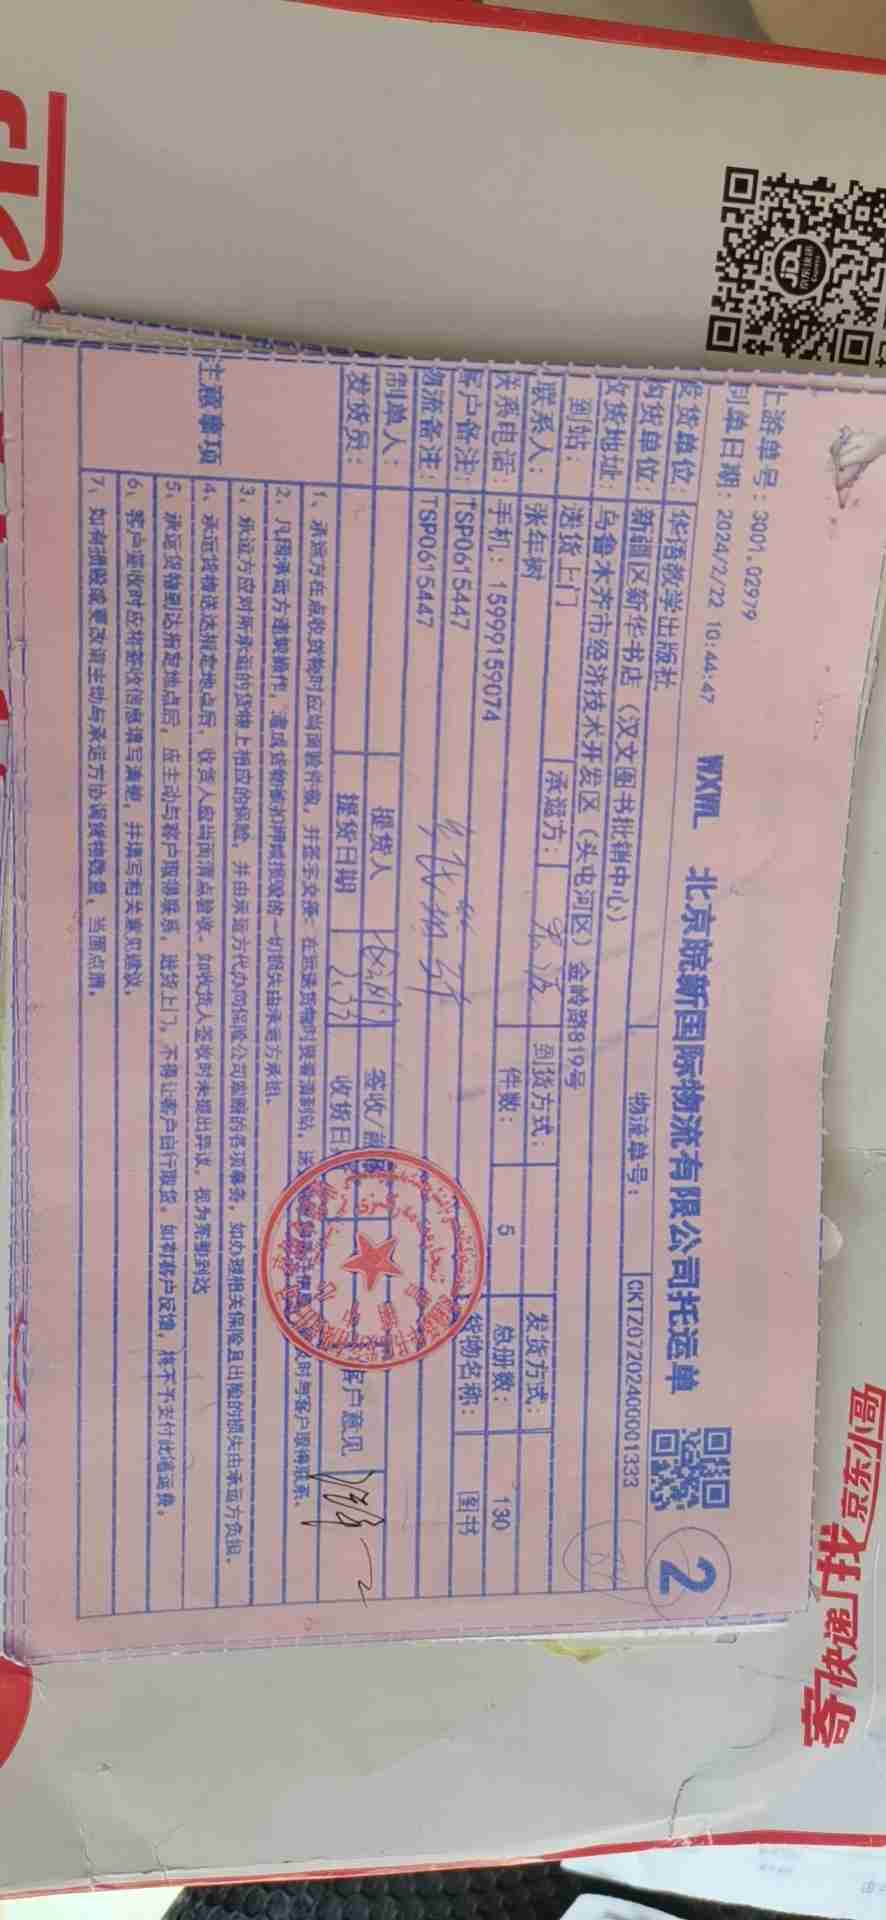 上游单号：3001.02979
制单日期：2024/2/22 10:44:47
WXWL 北京皖新国际物流有限公司托运单
2
发货单位：华语教学出版社
物流单号：CKTZ0720240001333
购货单位：新疆区新华书店（汉文图书批销中心）
收货地址：乌鲁木齐市经济技术开发区（头屯河区）金岭路819号
到站：送货上门
承运方：
到货方式：
发货方式：
联系人：张年树
件数：5
总册数：130
联系电话：手机：15999159074
货物名称：图书
客户备注：TSP0615447
物流备注：TSP0615447
制单人：
提货人
签收/
发货员：
提货日期
收货日
客户意见
注意事项
1、承运方在点收货物时应当面验件数，并签字交接。在运装货物时要看清到站，
时与客户取得联系。
2、凡因承运方造成货物
一切损失由承运方承担。
3、承运方应对所承运的货物上相应的保险，并由承运方代办向保险公司索赔的各项事务，如办理相关保险且出险的损失由承运方负担。
4、承运货物送达指定地点后，收货人应当面清点验收。如收货人签收时未提出异议，视为完整到达
5、承运货物到达指定地点后，应主动与客户取得联系，送货上门，不得让客户自行取货。如有客户反馈，将不予支付此笔运费。
6、客户签收时应将签收信息填写清楚，并填写相关意见建议。
7、如有损毁或更改请主动与承运方协调货物数量，当面点清。
JDL
京东快递
寄快递 找京东小哥